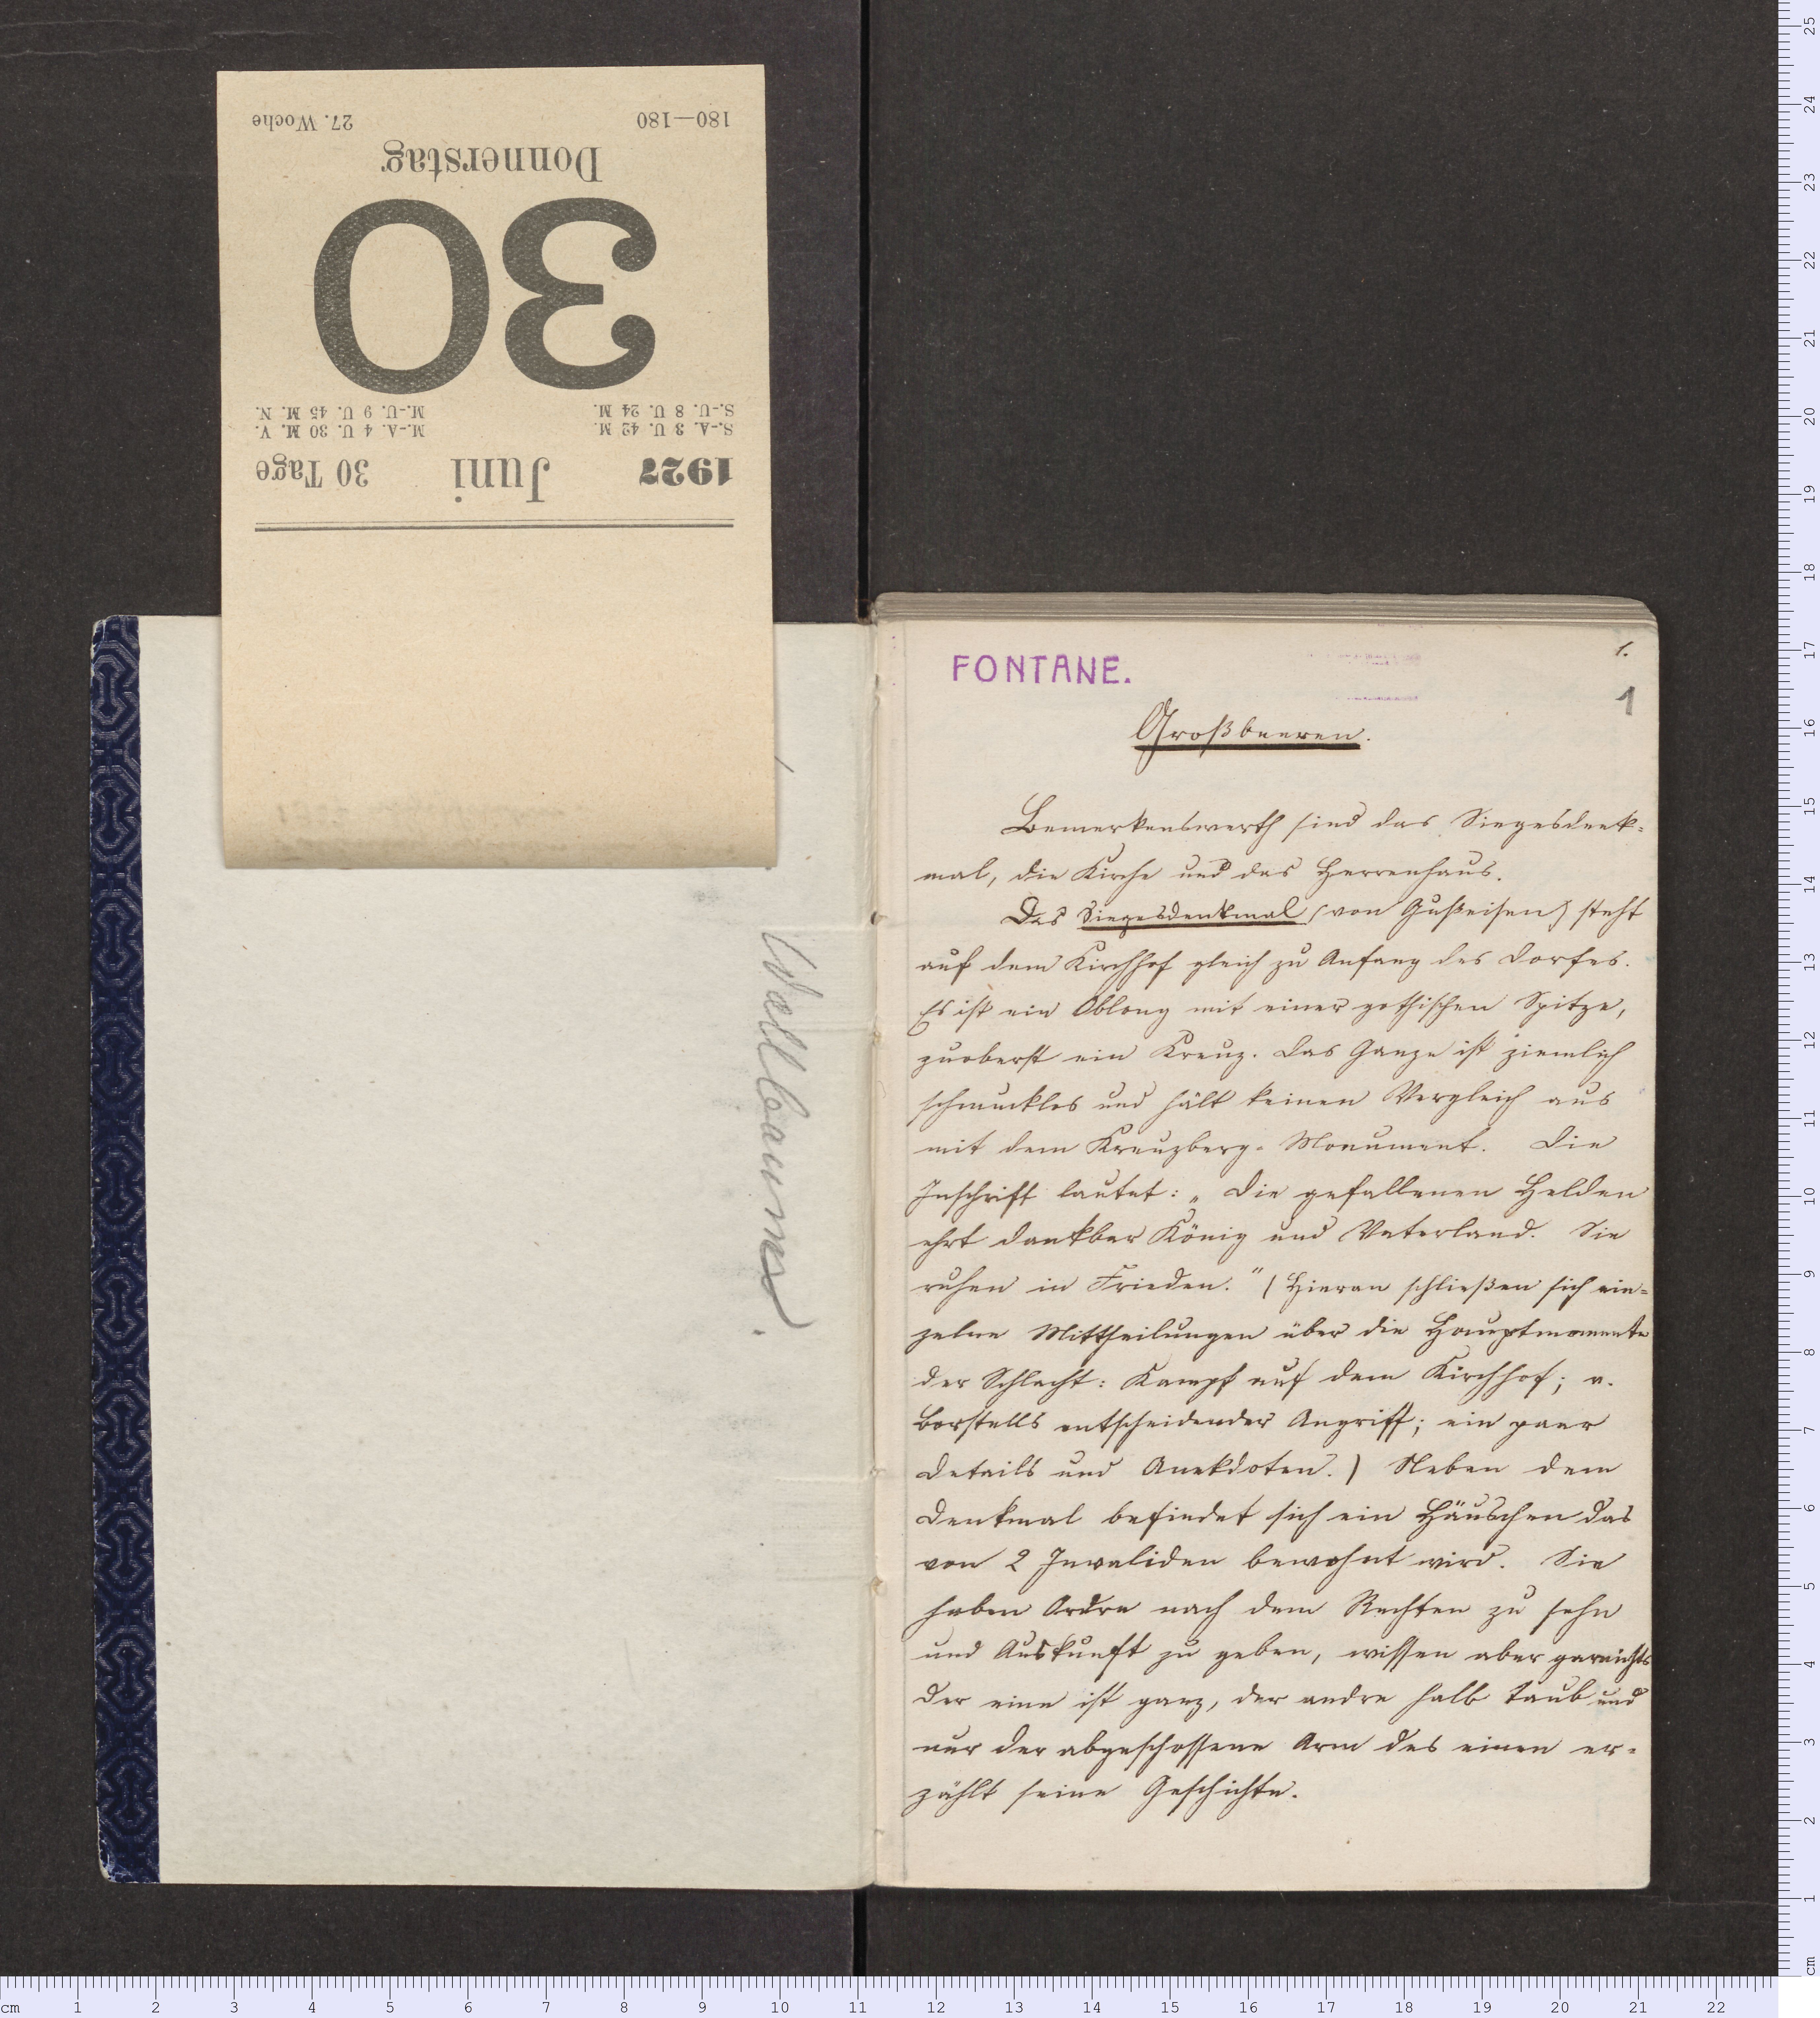 1927 Juni 30 Tage
S.-A. 3 U. 42 M. M.-A. 4 U. 30 M. V.
S.-U. 8 U. 24 M. M.-U. 9 U. 45 M. N.
30
Donnerstag
180—180 27. Woche
FONTANE.
1.
1
Großbeeren.
Bemerkenswerth sind das Siegesdenk-
mal, die Kirche und das Herrenhaus.
Das Siegesdenkmal (von Gußeisen) steht
auf dem Kirchhof gleich zu Anfang des Dorfes.
Es ist ein Oblong mit einer gothischen Spitze,
zuoberst ein Kreuz. Das Ganze ist ziemlich
schmucklos und hält keinen Vergleich aus
mit dem Kreuzberg-Monument. Die
Inschrift lautet: „Die gefallenen Helden
ehrt dankbar König und Vaterland. Sie
ruhen in Frieden.“ (Hieran schließen sich ein-
zelne Mittheilungen über die Hauptmomente
der Schlacht: Kampf auf dem Kirchhof; v.
Borstells entscheidender Angriff; ein paar
Details und Anekdoten.) Neben dem
Denkmal befindet sich ein Häuschen das
von 2 Invaliden bewohnt wird. Sie
haben Ordre nach dem Rechten zu sehn
und Auskunft zu geben, wissen aber garnichts
Der eine ist ganz, der andre halb taub und
nur der abgeschossene Arm des einen er-
zählt seine Geschichte.